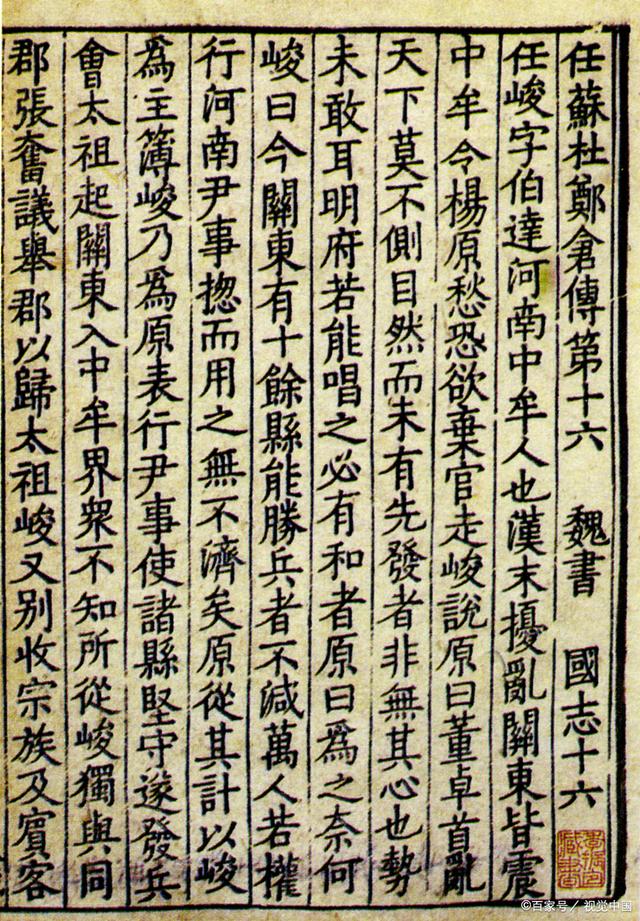 任蘇杜鄭倉傳第十六　魏書　國志十六
任峻字伯達河南中牟人也漢末擾亂關東皆震
中牟令楊原愁恐欲棄官走峻說原曰董卓首亂
天下莫不側目然而未有先發者非無其心也勢
未敢耳明府若能唱之必有和者原曰為之奈何
峻曰今關東有十餘縣能勝兵者不減萬人若權
行河南尹事揔而用之無不濟矣原從其計以峻
為主簿峻乃為原表行尹事使諸縣堅守遂發兵
會太祖起關東入中牟界衆不知所從峻獨與同
郡張奮議舉郡以歸太祖峻又別收宗族及賓客
©百家号／视觉中国